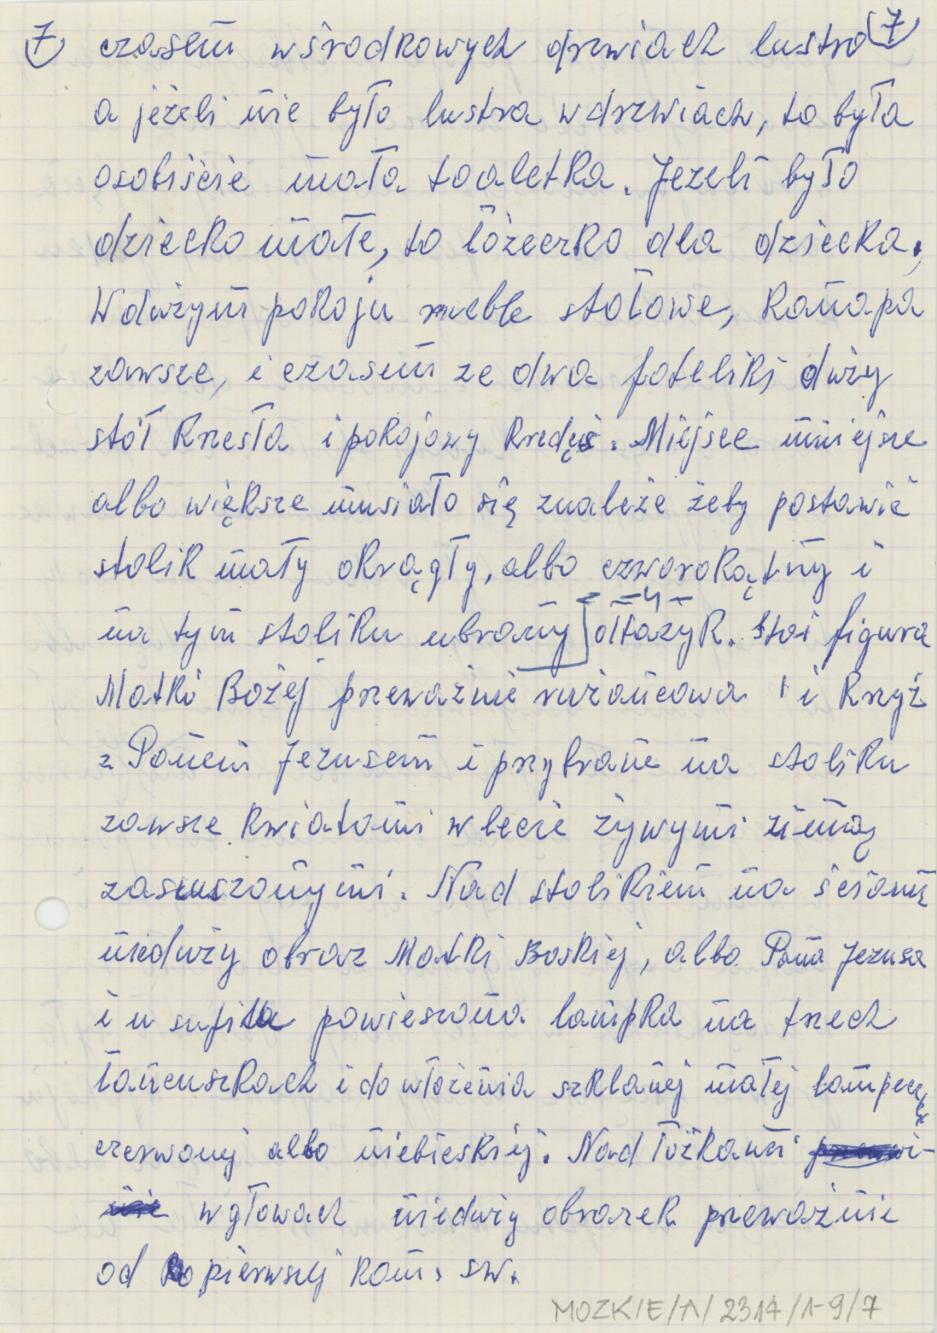 7 czasem wśrodkowych drzwiach lustro 7
a jeżeli nie było lustra wdrzwiach, to była
osobiście mała toaletka. Jezeli było
dziecko małe, to lóżeczko dla dziecka.
Wdużym pokoju meble stołowe, kanapa
zawsze, i czasem ze dwa foteliki duży
stół krzesła i pokojowy kredęs. Miejsce mniejsze
albo większe musiało się znaleźć żeby postawić
stolik mały okrągły, albo czworokątny i
na tym stoliku ubrany ołtażyk. Stoi figura
Matki Bożej przeważnie rużańcowa i krzyż
z Panem Jezusem i przybrane na stoliku
zawsze kwiatami wlecie żywymi zimą
zasuszonymi. Nad stolikiem na ścianę
nieduży obraz Matki Boskiej, albo Pana Jezusa
i u sufitu powieszona lampka na trzech
łańcuszkach i do włożenia szklanej małej lampeczki
czerwonej albo niebieskiej. Nad łóżkami
wgłowach nieduży obrazek przeważnie
od pierwszej kom. sw.
MOZKIE/A/2314/1-9/7